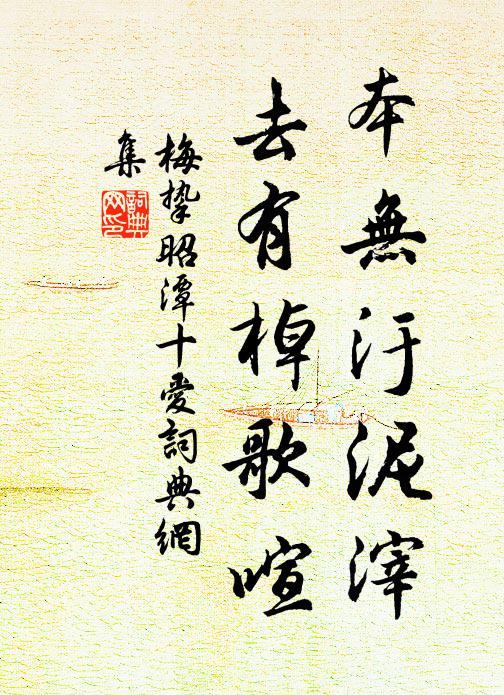 本無汙泥滓
去有棹歌喧
梅摯昭潭十愛詞典網
集
詞典網印